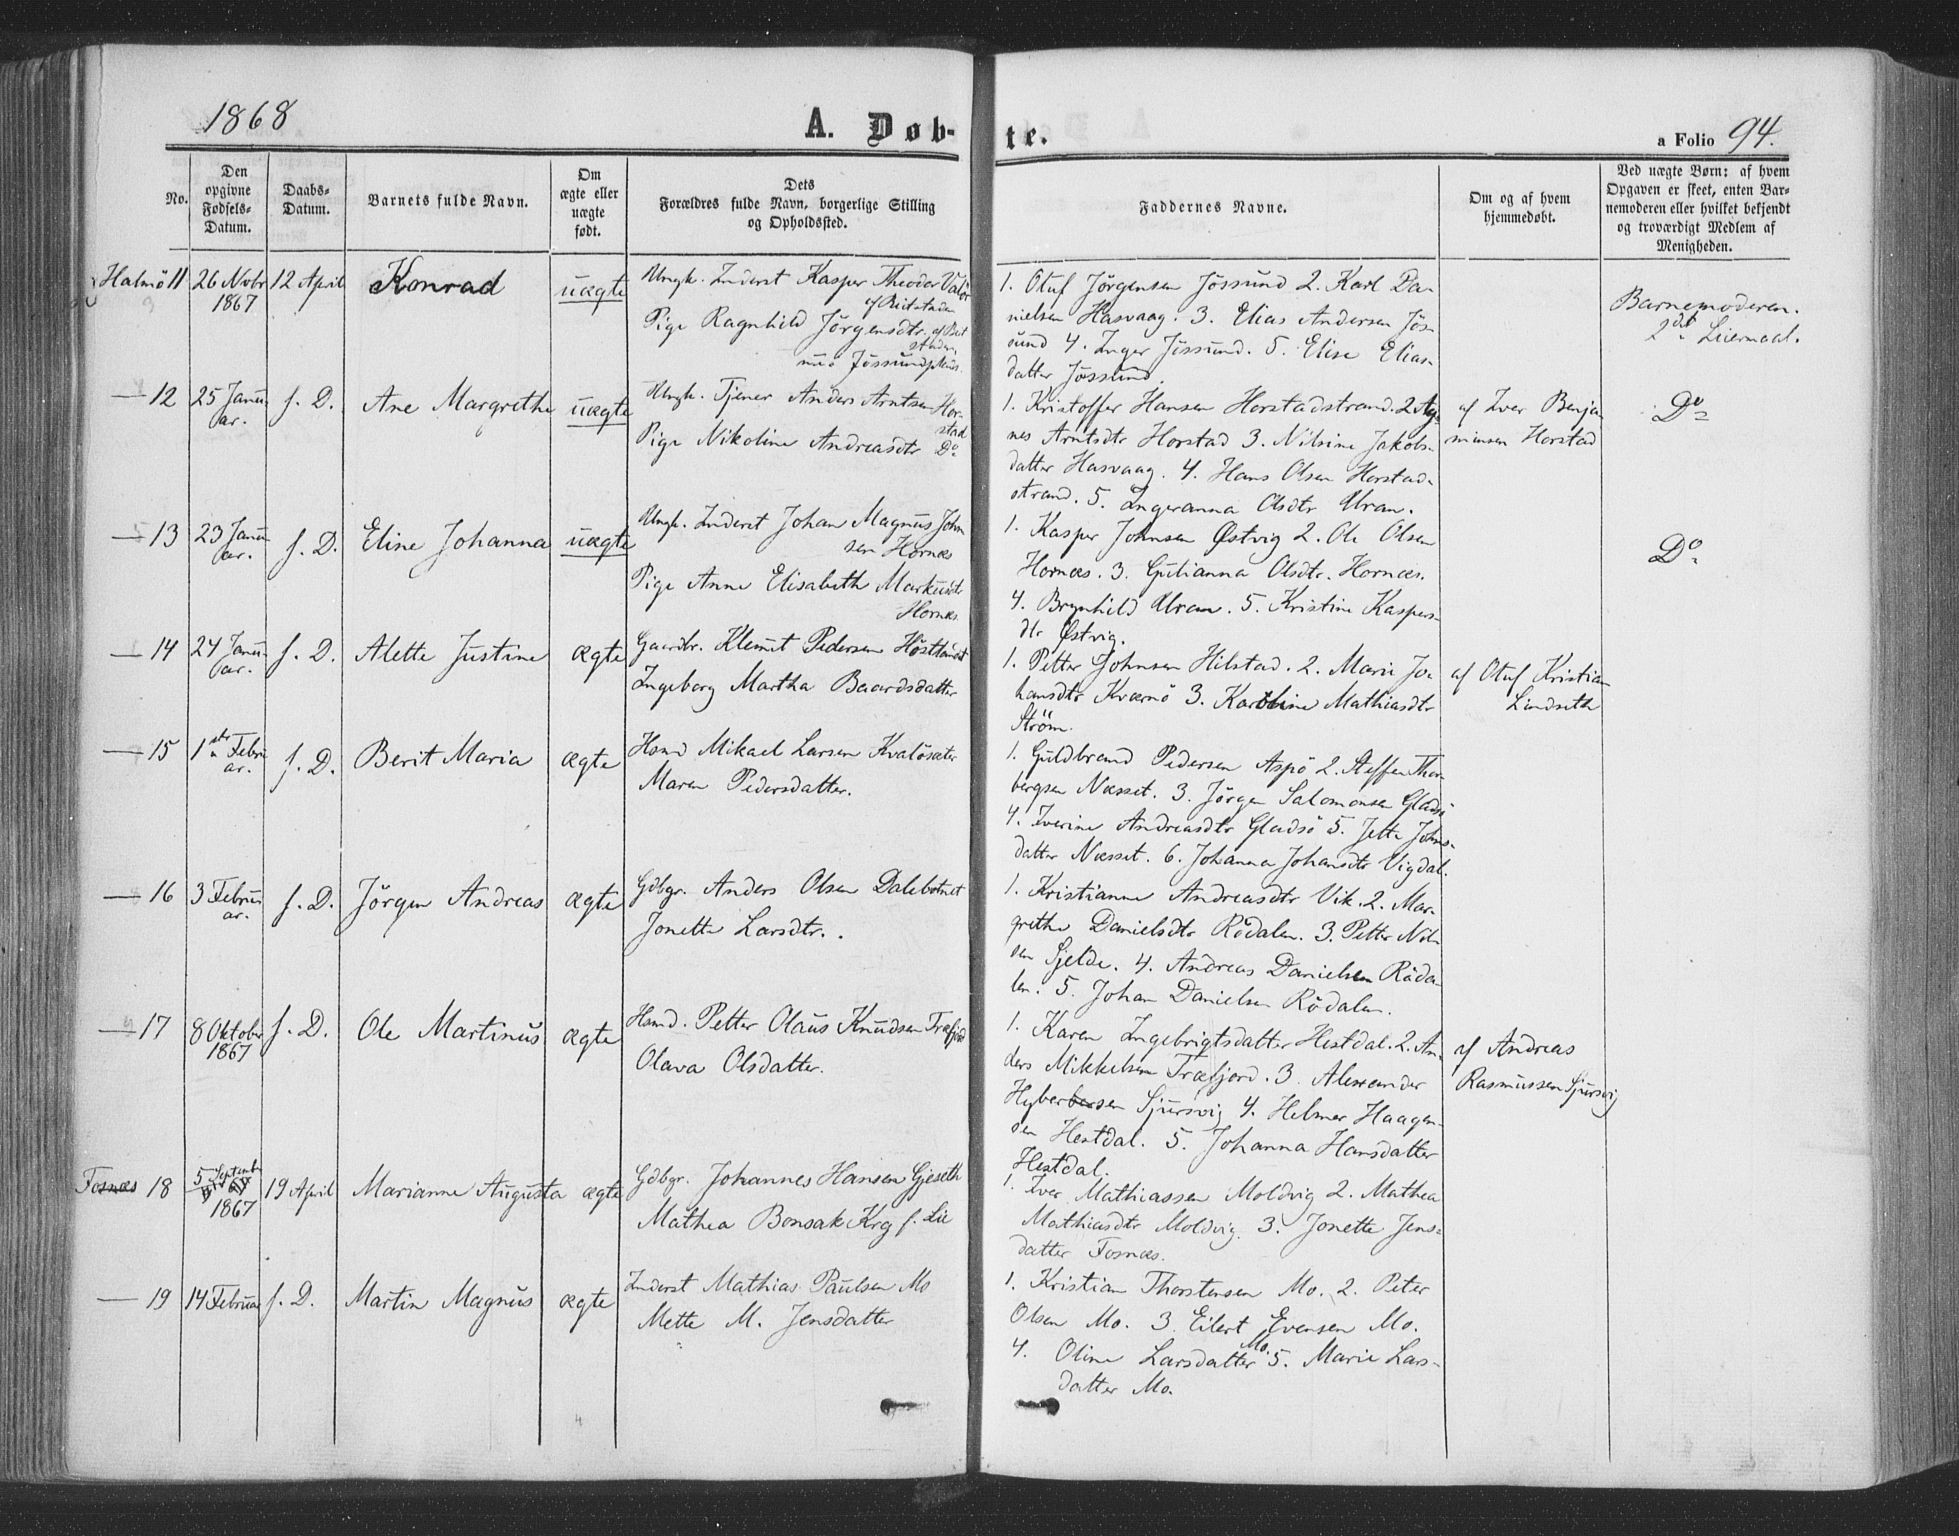 1868
A. Døb-
te.
a Folio 94.
No.
Den opgivne Fødsels-Datum.
Daabs-Datum.
Barnets fulde Navn.
Om ægte eller uægte født.
Dets Forældres fulde Navn, borgerlige Stilling og Opholdssted.
Faddernes Navne.
Om og af hvem hjemmedøbt.
Ved uægte Børn: af hvem Opgaven er skeet, enten Barnemoderen eller hvilket bekjendt og troværdigt Medlem af Menigheden.
Halmö 11
26 Novbr
1867
12 April
Konrad
uægte
Ungk. Inderst Kasper Theodor Valör
af Beitstaden
Pige Ragnhild Jörgensdtr. af Beit
staden,
Jössund
1. Oluf Jörgensen Jössund 2. Karl Da-
nielsen Hasvaag. 3. Elias Andersen Jös-
sund 4. Inger Jössund. 5. Elise Elias-
datter Jössund.
Barnemoderen.
2det Leiermaal.
— 12
25 Janu-
ar.
s. D.
Ane Margrethe
uægte
Ungk. Tjener Anders Arntsen Hor-
stad
Pige Nikoline Andreasdtr Do
1. Kristoffer Hansen Horstadstrand. 2. Ag-
nes Arntsdtr Horstad 3. Nilsine Jakobs-
datter Hasvaag. 4. Hans Olsen Horstad-
strand. 5. Ingeranna Olsdtr Uran.
af Iver Benja-
minsen Horstad
Do
— 13
23 Janu-
ar.
s. D.
Eline Johanna
uægte
Ungk. Inderst Johan Magnus John-
sen Hornæs
Pige Anne Elisabeth Markusdtr
Hornæs
1. Kasper Johnsen Østvig 2. Ole Olsen
Hornæs. 3. Gutianna Olsdtr. Hornæs.
4. Brynhild Uran. 5. Kristine Kaspers-
dtr Østvig.
Do
— 14
24 Janu-
ar.
s. D.
Alette Justine
ægte
Gaardbr. Klemet Pedersen Høstlandet
Ingeborg Martha Baardsdatter
1. Petter Johnsen Hilstad. 2. Marie Jo-
hansdtr Kværnö 3. Karoline Mathiasdtr
Ström.
af Oluf Kristian
Lindseth
— 15
1ste Febru-
ar.
s. D.
Berit Maria
ægte
Hsmd Mikael Larsen Kvalösæter
Maren Pedersdatter.
1. Guldbrand Pedersen Aspö 2. Steffen Thor-
bergsen Næsset. 3. Jörgen Salomonsen Gladsö
4. Iverine Andreasdtr Gladsö 5. Jette Johns-
datter Næsset. 6. Johanna Johansdtr Vigdal.
— 16
3 Febru-
ar.
s. D.
Jörgen Andreas
ægte
Gdbgr. Anders Olsen Dalebotnet
Jonette Larsdtr.
1. Kristianne Andreasdtr Vik. 2. Mar-
grethe Danielsdtr Rödalen. 3. Petter Nil-
sen Sjelde. 4. Andreas Danielsen Röda-
len. 5. Johan Danielsen Rödalen.
— 17
8 Oktober
1867
s. D.
Ole Martinus
ægte
Hsmd. Petter Olaus Knudsen Træfjord
Olava Olsdatter.
1. Karen Ingebrigtsdatter Hestdal. 2. An-
ders Mikkelsen Træfjord. 3. Alexander
Hyberbersen Sjursvig 4. Helmer Haagen-
sen Hestdal. 5. Johanna Hansdatter
Hestdal.
af Andreas
Rasmussen Sjursvig
Fosnæs 18
5 Septembr
1867
19 April
Marianne Augusta
ægte
Gdbgr. Johannes Hansen Gjeseth
Mathea Bonsak Krg f. Lie
1. Iver Mathiassen Moldvig 2. Mathea
Mathiasdtr Moldvig. 3. Jonette Jens-
datter Fosnæs.
— 19
14 Februar
s. D.
Martin Magnus
ægte
Inderst Mathias Paulsen Mo
Mette M. Jensdatter
1. Kristian Thorstensen Mo. 2. Peter
Olsen Mo. 3. Eilert Evensen Mo.
4. Oline Larsdatter Mo. 5. Marie Lars-
datter Mo.